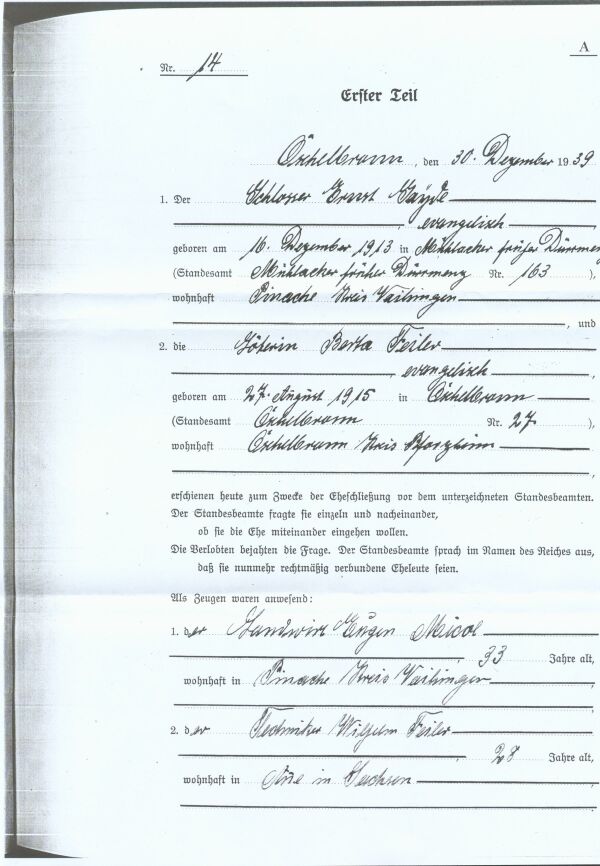 A
Nr. 14
Erster Teil
Öschelbronn, den 30. Dezember 1939
1. Der Schlosser Ernst Gayde
, evangelisch ,
geboren am 16. Dezember 1913 in Mühlacker früher Dürrmenz
(Standesamt Mühlacker früher Dürrmenz Nr. 163 ),
wohnhaft Pinache Kreis Vaihingen
, und
2. die Berta Feiler
, evangelisch ,
geboren am 27. August 1915 in Öschelbronn
(Standesamt Öschelbronn Nr. 27 ),
wohnhaft Öschelbronn Kreis Pforzheim
,
erschienen heute zum Zwecke der Eheschließung vor dem unterzeichneten Standesbeamten.
Der Standesbeamte fragte sie einzeln und nacheinander,
ob sie die Ehe miteinander eingehen wollen.
Die Verlobten bejahten die Frage. Der Standesbeamte sprach im Namen des Reiches aus,
daß sie nunmehr rechtmäßig verbundene Eheleute seien.
Als Zeugen waren anwesend:
1. der Landwirt Eugen Micol
, 33 Jahre alt,
wohnhaft in Pinache Kreis Vaihingen
,
2. der Techniker Wilhelm Feiler
, 28 Jahre alt,
wohnhaft in Aue in Sachsen